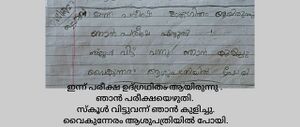 ഇന്ന് പരീക്ഷ
ഞാൻ പരീക്ഷ എഴുതി
വിട്ട് വന്ന് ഞാൻ കുളിച്ചു
വൈകുന്നേരം ആശുപത്രിയിൽ പോയി
ഇന്ന് പരീക്ഷ ഉദ്ഗ്രഥിതം ആയിരുന്നു .
ഞാൻ പരീക്ഷയെഴുതി.
സ്കൂൾ വിട്ടുവന്ന് ഞാൻ കുളിച്ചു.
വൈകുന്നേരം ആശുപത്രിയിൽ പോയി.